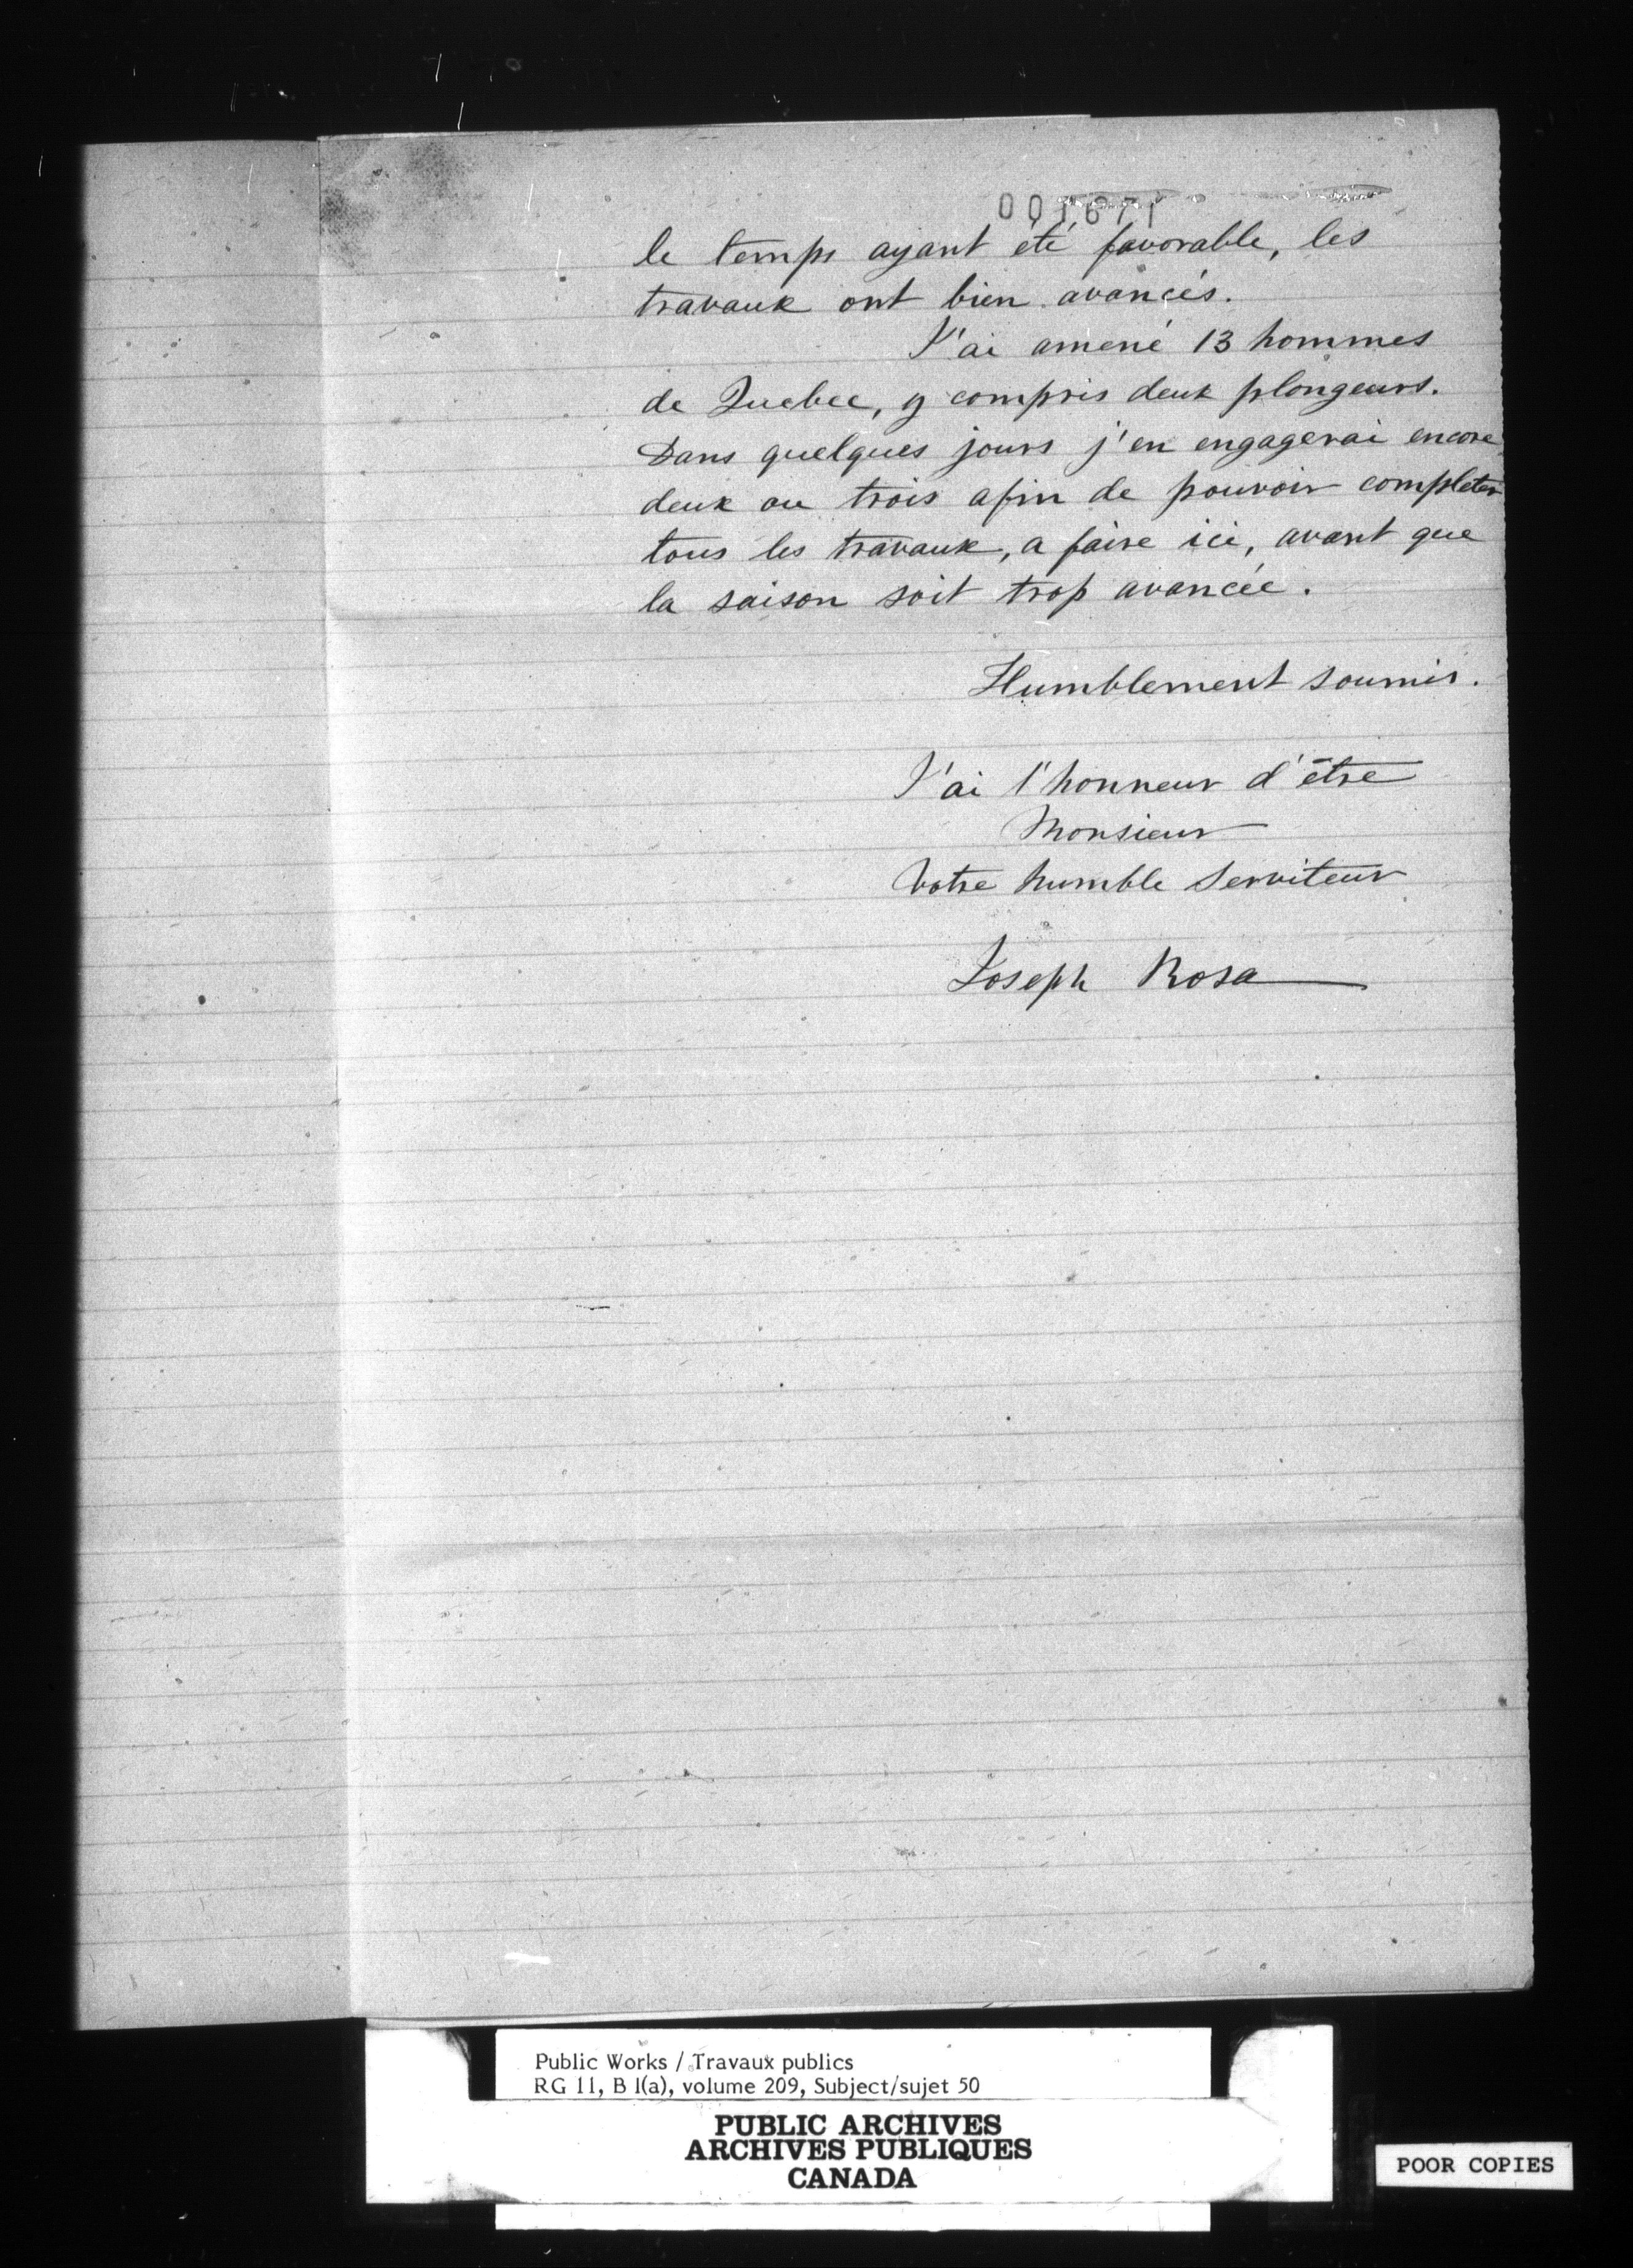 001671
le temps ayant été favorable, les
travaux ont bien avancés.
J'ai amené 13 hommes
de Quebec, y compris deux plongeurs.
Dans quelques jours j'en engagerai encore
deux ou trois afin de pouvoir completer
tous les travaux, a faire ici, avant que
la saison soit trop avancée.
Humblement soumis.
J'ai l'honneur d'être
Monsieur
Votre humble Serviteur
Joseph Rosa
Public Works / Travaux publics
RG 11, B 1(a), volume 209, Subject/sujet 50
PUBLIC ARCHIVES
ARCHIVES PUBLIQUES
CANADA
POOR COPIES